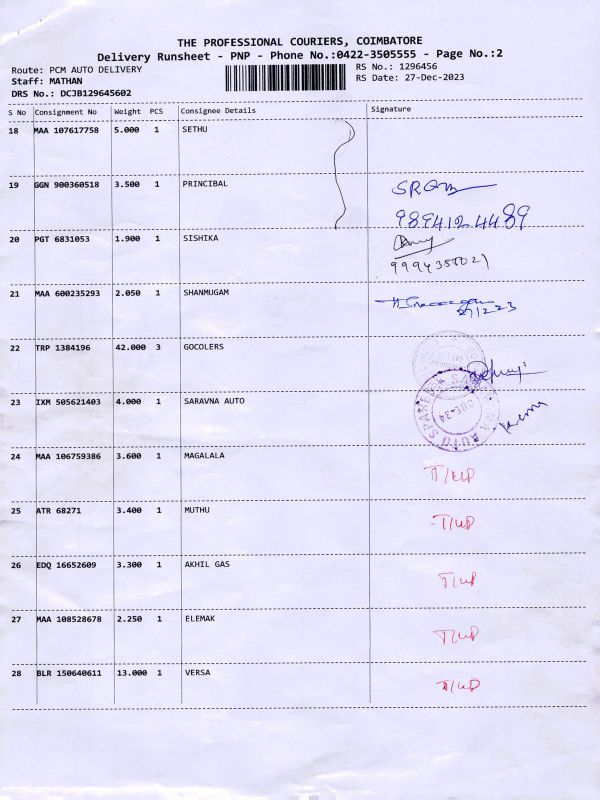 THE PROFESSIONAL COURIERS, COIMBATORE
Delivery Runsheet - PNP - Phone No.:0422-3505555 - Page No.:2
Route: PCM AUTO DELIVERY
RS No.: 1296456
Staff: MATHAN
RS Date: 27-Dec-2023
DRS No.: DCJB129645602
S No Consignment No Weight PCS Consignee Details Signature
18 MAA 107617758 5.000 1 SETHU
19 GGN 900360518 3.500 1 PRINCIBAL
9894124489
20 PGT 6831053 1.900 1 SISHIKA
21 MAA 600235293 2.050 1 SHANMUGAM
22 TRP 1384196 42.000 3 GOCOLERS
23 IXM 505621403 4.000 1 SARAVNA AUTO
24 MAA 106759386 3.600 1 MAGALALA
25 ATR 68271 3.400 1 MUTHU
26 EDQ 16652609 3.300 1 AKHIL GAS
27 MAA 108528678 2.250 1 ELEMAK
28 BLR 150640611 13.000 1 VERSA